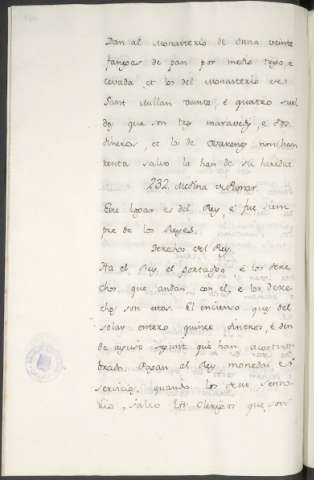 Dan al Monasterio de Onna veinte
fanegas de pan por medio trigo, e
cevada, et los del Monasterio de
Sant Millan veinte, e quatro suel
dos que son tres maravedis, e dos
dineros, et los de non han
renta salvo la han de su heredat
232. Medina de Pomar.
Este logar es del Rey, e fue siem
pre de los Reyes.
Derechos del Rey.
Ha el Rey, el portadgo, e los dere
chos que andan con el, e los dere
chos son estos. El encienso que del
solar entero quince dineros, e den
de ayuso segunt que han acostum
brado. Pagan al Rey monedas et
servicios, quando los de su senno
rio, salvo los Clerigos que son